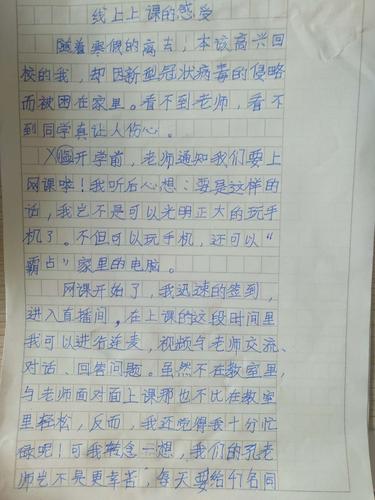 线上上课的感受
随着寒假的离去，本该高兴回
校的我，却因新型冠状病毒的侵略
而被困在家里。看不到老师，看不
到同学真让人伤心。
临开学前，老师通知我们要上
网课啦！我听后心想：要是这样的
话，我岂不是可以光明正大的玩手
机了。不但可以玩手机，还可以“
霸占”家里的电脑。
网课开始了，我迅速的签到，
进入直播间。在上课的这段时间里
我可以进行连麦，视频与老师交流、
对话、回答问题。虽然不在教室里，
与老师面对面上课那也不比在教室
里轻松，反而，我还觉得我十分忙
碌呢！可我转念一想，我们的孔老
师岂不是更辛苦，每天要给47名同